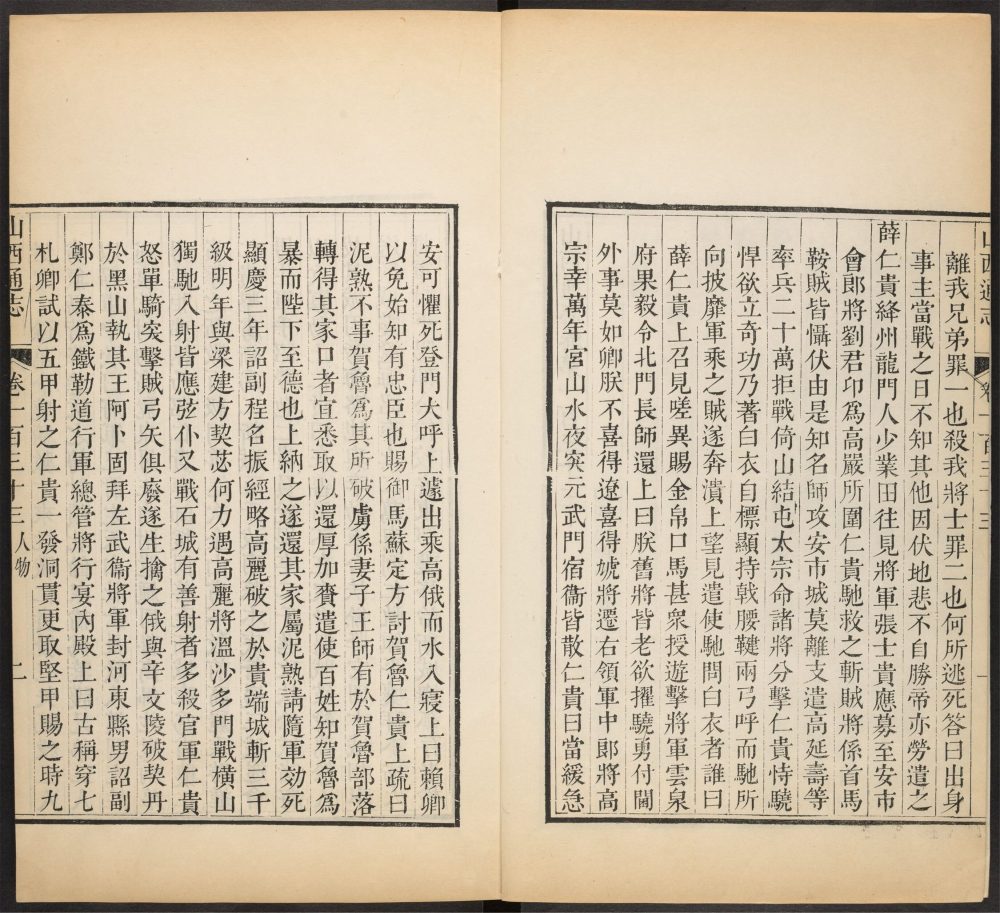 山西通志 卷一百三十三 一
離我兄弟罪一也殺我將士罪二也何所逃死答曰出身
事主當戰之日不知其他因伏地悲不自勝帝亦勞遣之
薛仁貴絳州龍門人少業田往見將軍張士貴應募至安市
會郎將劉君卭爲高嚴所圍仁貴馳救之斬賊將係首馬
鞍賊皆懾伏由是知名師攻安市城莫離支遣高延壽等
率兵二十萬拒戰倚山結屯太宗命諸將分擊仁貴恃驍
悍欲立奇功乃著白衣自標顯持戟腰鞬兩弓呼而馳所
向披靡軍乘之賊遂奔潰上望見遣使馳問白衣者誰曰
薛仁貴上召見嗟異賜金帛口馬甚衆授遊擊將軍雲泉
府果毅令北門長師還上曰朕舊將皆老欲擢驍勇付閫
外事莫如卿朕不喜得遼喜得虓將遷右領軍中郎將高
宗幸萬年宮山水夜突元武門宿衞皆散仁貴曰當緩急
安可懼死登門大呼上遽出乘高俄而水入寢上曰賴卿
以免始知有忠臣也賜御馬蘇定方討賀魯仁貴上疏曰
泥熟不事賀魯爲其所破虜係妻子王師有於賀魯部落
轉得其家口者宜悉取以還厚加賚遣使百姓知賀魯爲
暴而陛下至德也上納之遂還其家屬泥熟請隨軍効死
顯慶三年詔副程名振經略高麗破之於貴端城斬三千
級明年與梁建方契苾何力遇高麗將溫沙多門戰橫山
獨馳入射皆應弦仆又戰石城有善射者多殺官軍仁貴
怒單騎突擊賊弓矢俱廢遂生擒之俄與辛文陵破契丹
於黑山執其王阿卜固拜左武衞將軍封河東縣男詔副
鄭仁泰爲鐵勒道行軍總管將行宴內殿上曰古稱穿七
札卿試以五甲射之仁貴一發洞貫更取堅甲賜之時九
山西通志 卷一百三十三 人物 二